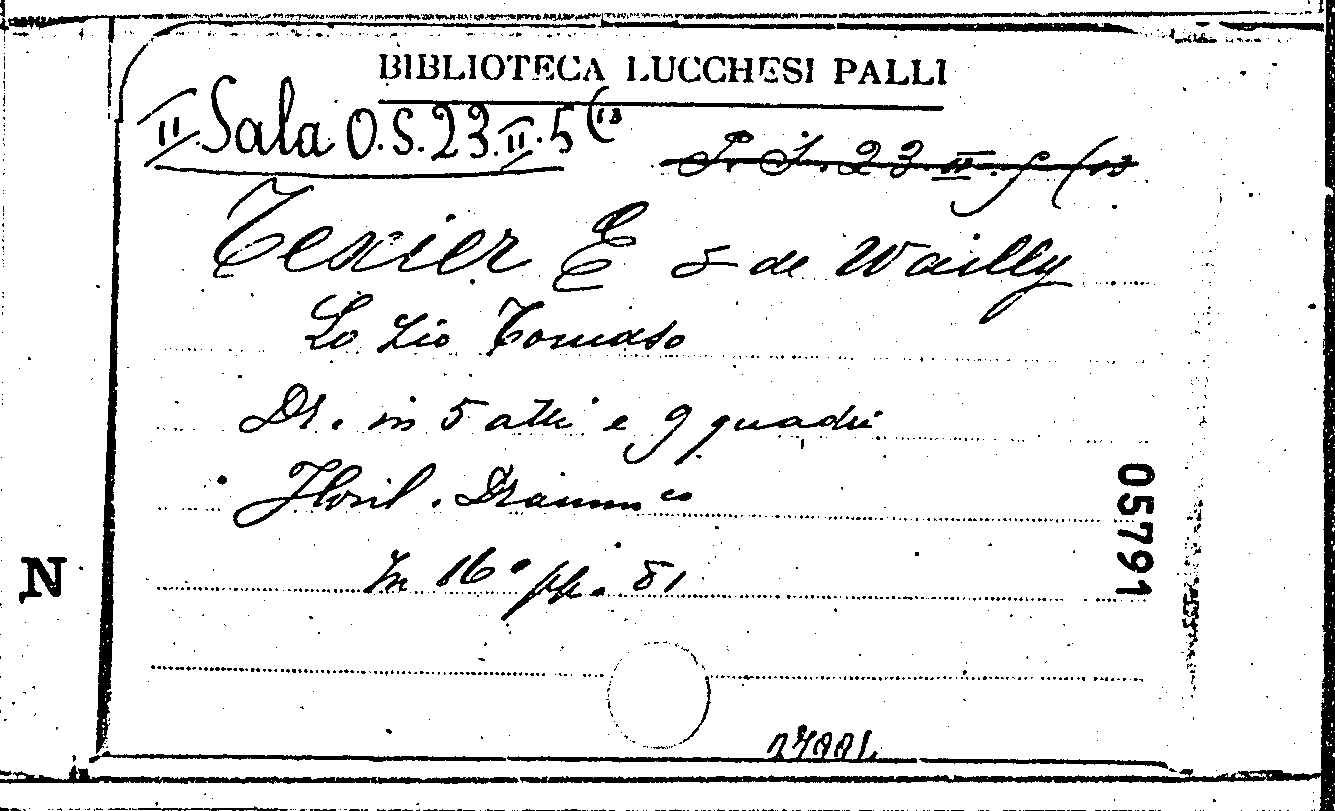 BIBLIOTECA LUCCHESI PALLI
II. Sala O.S.23.II.5(13
P. S. 23 II. 5 (13
Texier E & de Wailly
Lo Zio Tomaso
Dr. in 5 atti e 9 quadri
Floril. Dramm co
05791
N
In 16° pp. 81